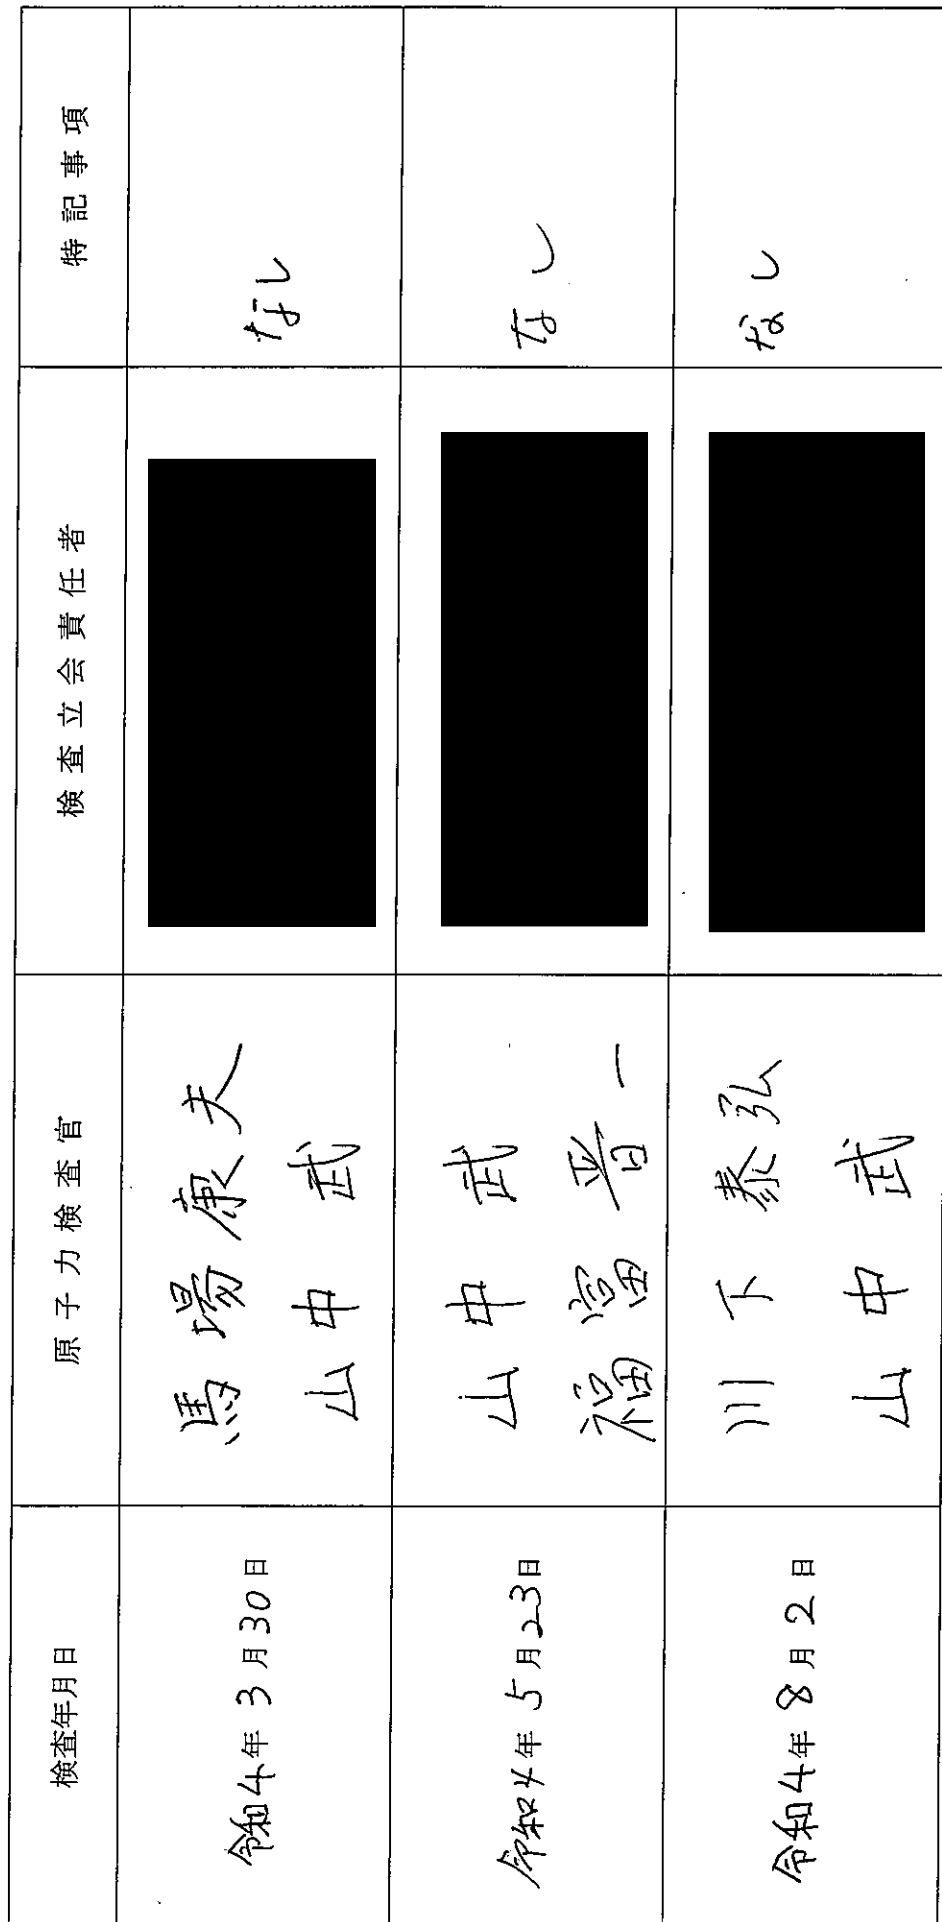 検査年月日
原子力検査官
検査立会責任者
特記事項
令和4年3月30日
馬場康夫
山中武
なし
令和4年5月23日
山中武
福富晋一
なし
令和4年8月2日
川下泰弘
山中武
なし